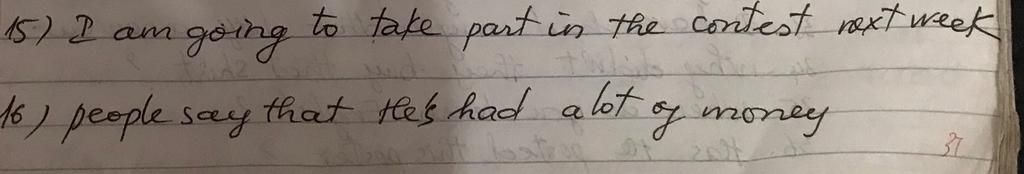 15) I am going to take part in the contest next week
16) people say that He's had a lot of money
37